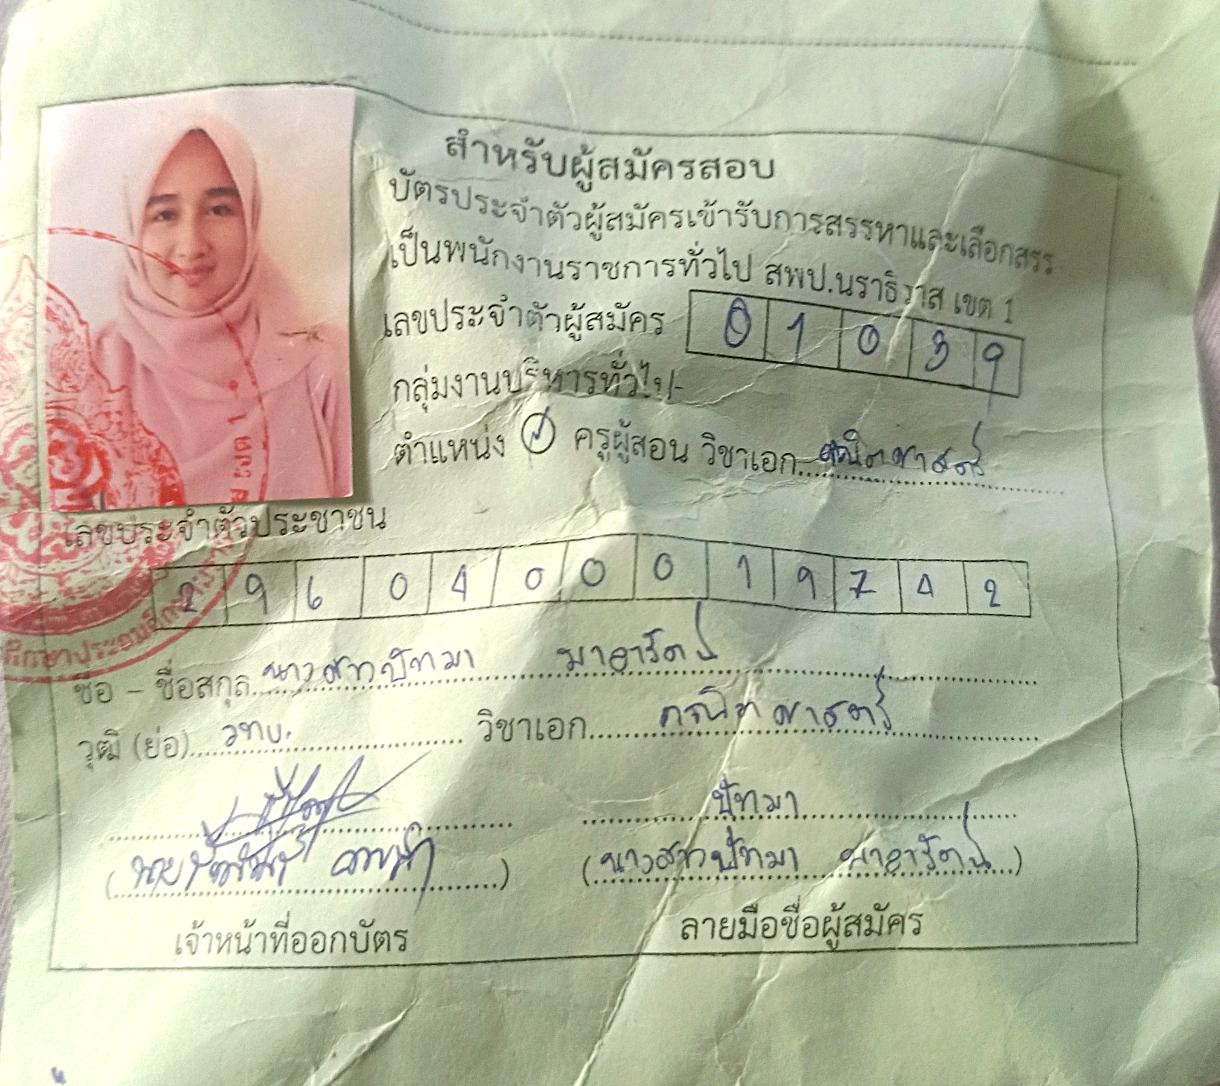 สำหรับผู้สมัครสอบ
บัตรประจำตัวผู้สมัครเข้ารับการสรรหาและเลือกสรร
เป็นพนักงานราชการทั่วไป สพป.นราธิวาส เขต 1
เลขประจำตัวผู้สมัคร 01039
กลุ่มงานบริหารทั่วไป
ตำแหน่ง ครูผู้สอน วิชาเอก คณิตศาสตร์
เลขประจำตัวประชาชน
2960400019742
ชื่อ - ชื่อสกุล นางสาวปัทมา
วุฒิ (ย่อ) วทบ. วิชาเอก คณิตศาสตร์
ปัทมา
(นาย) (นางสาวปัทมา)
เจ้าหน้าที่ออกบัตร ลายมือชื่อผู้สมัคร